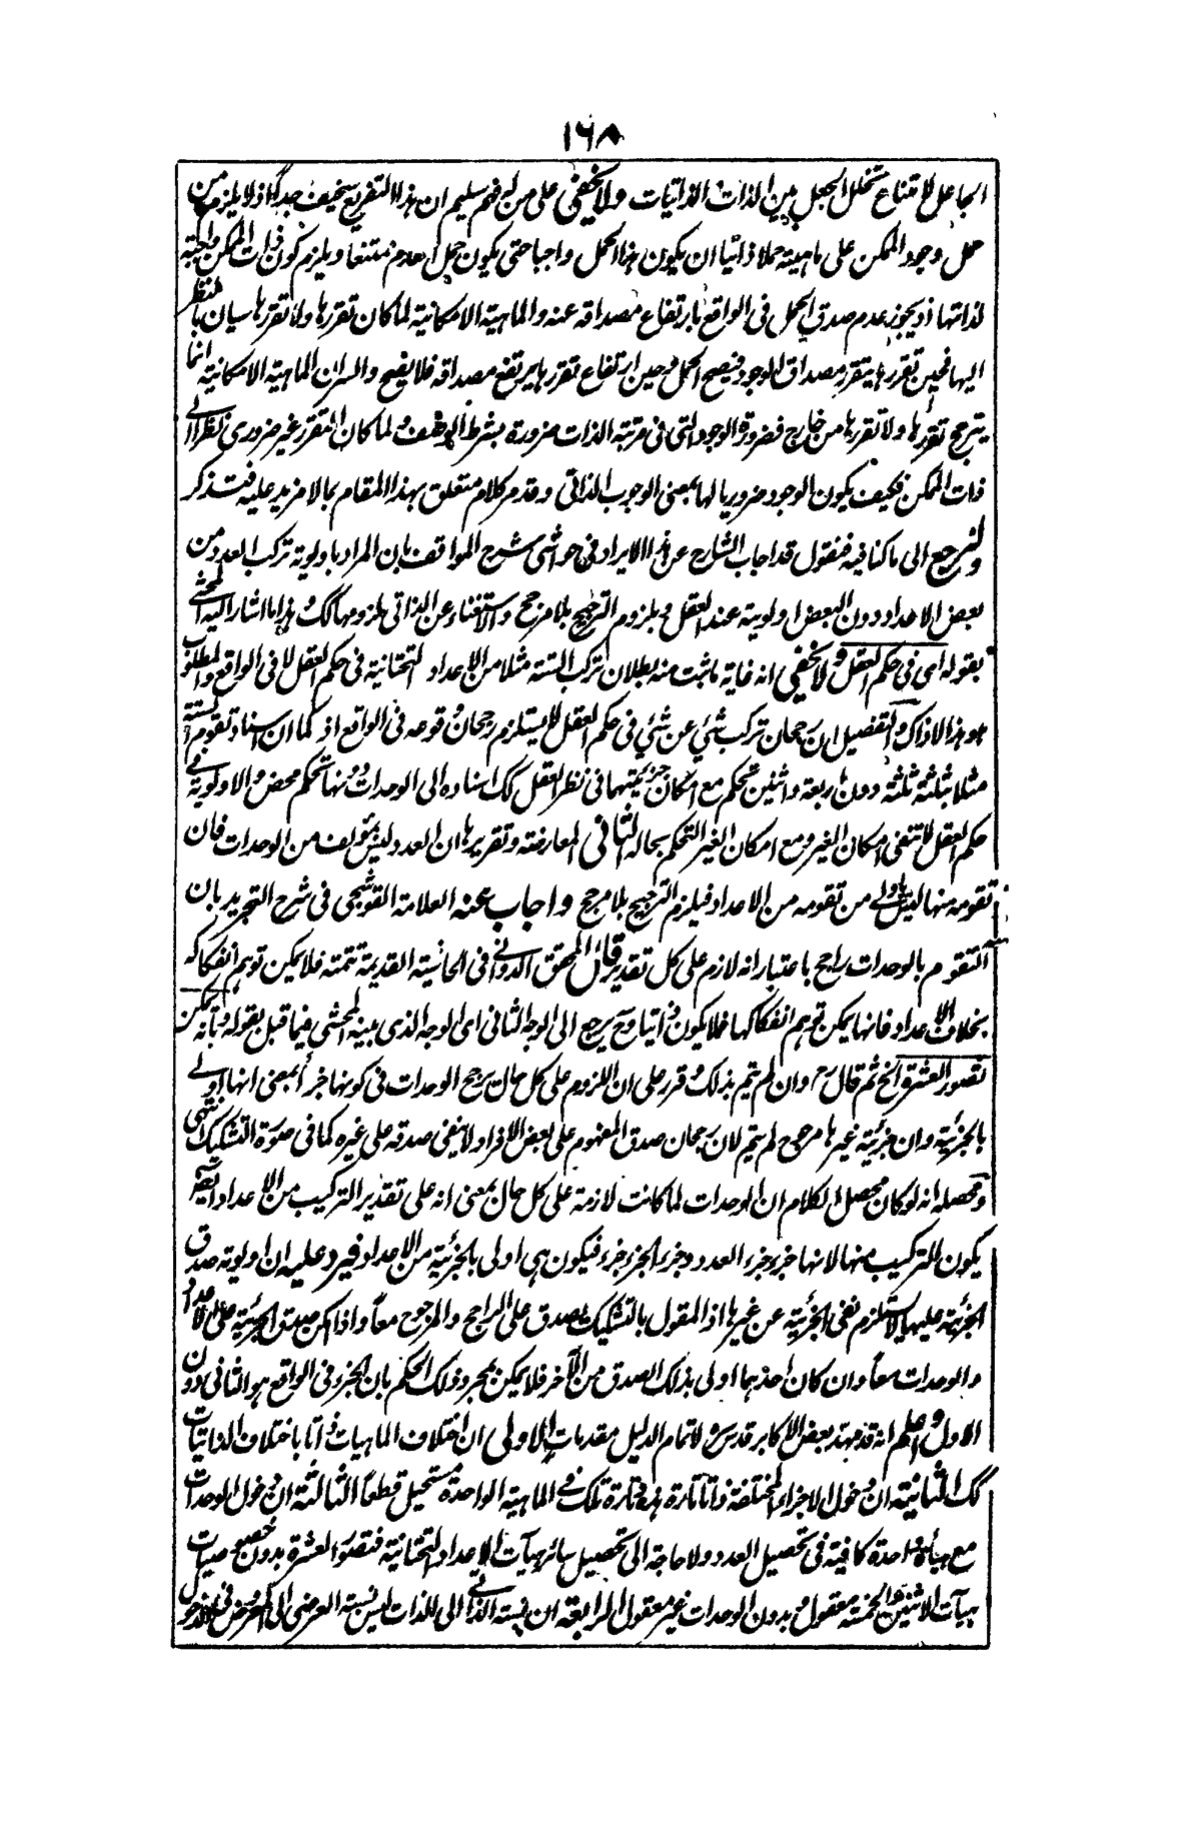 ١٦٨
الجاعل لامتناع تخلل الجعل بين الذات والذاتيات ولا يخفى على من له فهم سليم ان هذا التفريع سخيف جدا اذ لا يلزم من
حمل وجود الممكن على ماهيته حملا ذاتيا ان يكون هذا الحمل واجبا حتى يكون حمل العدم ممتنعا ويلزم كون ذات الممكن واجبة
لذاتها اذ يجوز عدم صدق الحمل فى الواقع بارتفاع مصداقه عنه والماهية الامكانية لما كان تقررها ولا تقررها سيان بالنظر
اليها فحين تقررها يتقرر مصداق الوجود فيصح الحمل وحين ارتفاع تقررها يرتفع مصداقه فلا يصح والسر ان الماهية الامكانية انما
يترجح تقررها ولا تقررها من خارج فضرورة الوجود التى فى مرتبة الذات ضرورة بشرط الوصف ولما كان التقرر غير ضرورى نظرا الى
ذات الممكن فكيف يكون الوجود ضروريا لها بمعنى الوجوب الذاتى وقد مر كلام متعلق بهذا المقام بما لا مزيد عليه فتذكر
ولنرجع الى ما كنا فيه فنقول قد اجاب الشارح عن هذا الايراد فى حواشى شرح المواقف بان المراد باولوية تركب العدد من
بعض الاعداد دون البعض اولوية عند العقل ويلزوم الترجيح بلا مرجح والاستغناء عن الذاتى لزومها كك وهذا ما اشار اليه المحشى
بقوله اى فى حكم العقل ولا يخفى انه غاية ما ثبت منه بطلان تركب الستة مثلا من الاعداد التحتانية فى حكم العقل لا فى الواقع والمطلوب
هو هذا لا ذاك والتفصيل ان رجحان تركب شئ عن شئ فى حكم العقل لا يستلزم رجحان وقوعه فى الواقع اذ كما ان اسناد تقوم الستة
مثلا بثلثة ثلثة دون اربعة واثنين تحكم مع امكان جزئيتها فى نظر العقل كك اسناده الى الوحدات دونها تحكم محض والاولوية فى
حكم العقل لا تنفى امكان الغير ومع امكان الغير التحكم بحاله الثانى المعارضة وتقريرها ان العدد ليس بمؤلف من الوحدات فان
تقومه منها ليس باولى من تقومه من الاعداد فيلزم الترجيح بلا مرجح واجاب عنه العلامة القوشجى فى شرح التجريد بان
التقوم بالوحدات راجح باعتبار انه لازم على كل تقدير قال المحقق الدوانى فى الحاشية القديمة تتمته فلا يمكن توهم انفكاكه
بخلاف الاعداد فانها يمكن توهم انفكاكها فلا يكون ذاتيا وح يرجع الى الوجه الثانى اى الوجه الذى بينه المحشى فيما قبل بقوله وبانه يمكن
تصور العشرة الخ ثم قال رح وان لم يتم بذلك وقرر على ان اللزوم على كل حال يرجح الوحدات فى كونها جزأ بمعنى انها اولى
بالجزئية وان جزئية غيرها مرجوح لم يتم لان رجحان صدق المفهوم على بعض الافراد لا ينفى صدقه على غيره كما فى صورة التشكيك انتهى
ومحصله انه لو كان محصل الكلام ان الوحدات لما كانت لازمة على كل حال بمعنى انه على تقدير التركيب من الاعداد ايضا
يكون للتركيب منها لانها جزء جزء العدد وجزء الجزء جزء فيكون هى اولى بالجزئية من الاعداد فيرد عليه ان اولوية صدق
الجزئية عليها لا يستلزم نفى الجزئية عن غيرها اذ المقول بالتشكيك يصدق على الراجح والمرجوح معا واذا امكن صدق الجزئية على الاعداد
والوحدات معا وان كان احدهما اولى بذلك الصدق من الآخر فلا يمكن بمجرد ذلك الحكم بان الجزء فى الواقع هو الثانى دون
الاول واعلم انه قد مهد بعض الاكابر قدس سره لاتمام الدليل مقدمات الاولى ان اختلاف الماهيات ذاتا باختلاف الذاتيات
كك والثانية ان دخول الاجزاء المختلفة ذاتا تارة هذه وتارة تلك فى الماهية الواحدة مستحيل قطعا الثالثة ان دخول الوحدات
مع هيأة واحدة كافية فى تحصيل العدد ولا حاجة الى تحصيل سائر هيآت الاعداد التحتانية فتصور العشرة بدون خصوصيات
هيآت الاثنين والخمسة معقول وبدون الوحدات غير معقول الرابعة ان نسبة الذاتى الى الذات ليس نسبة العرضى الى المعروض فى